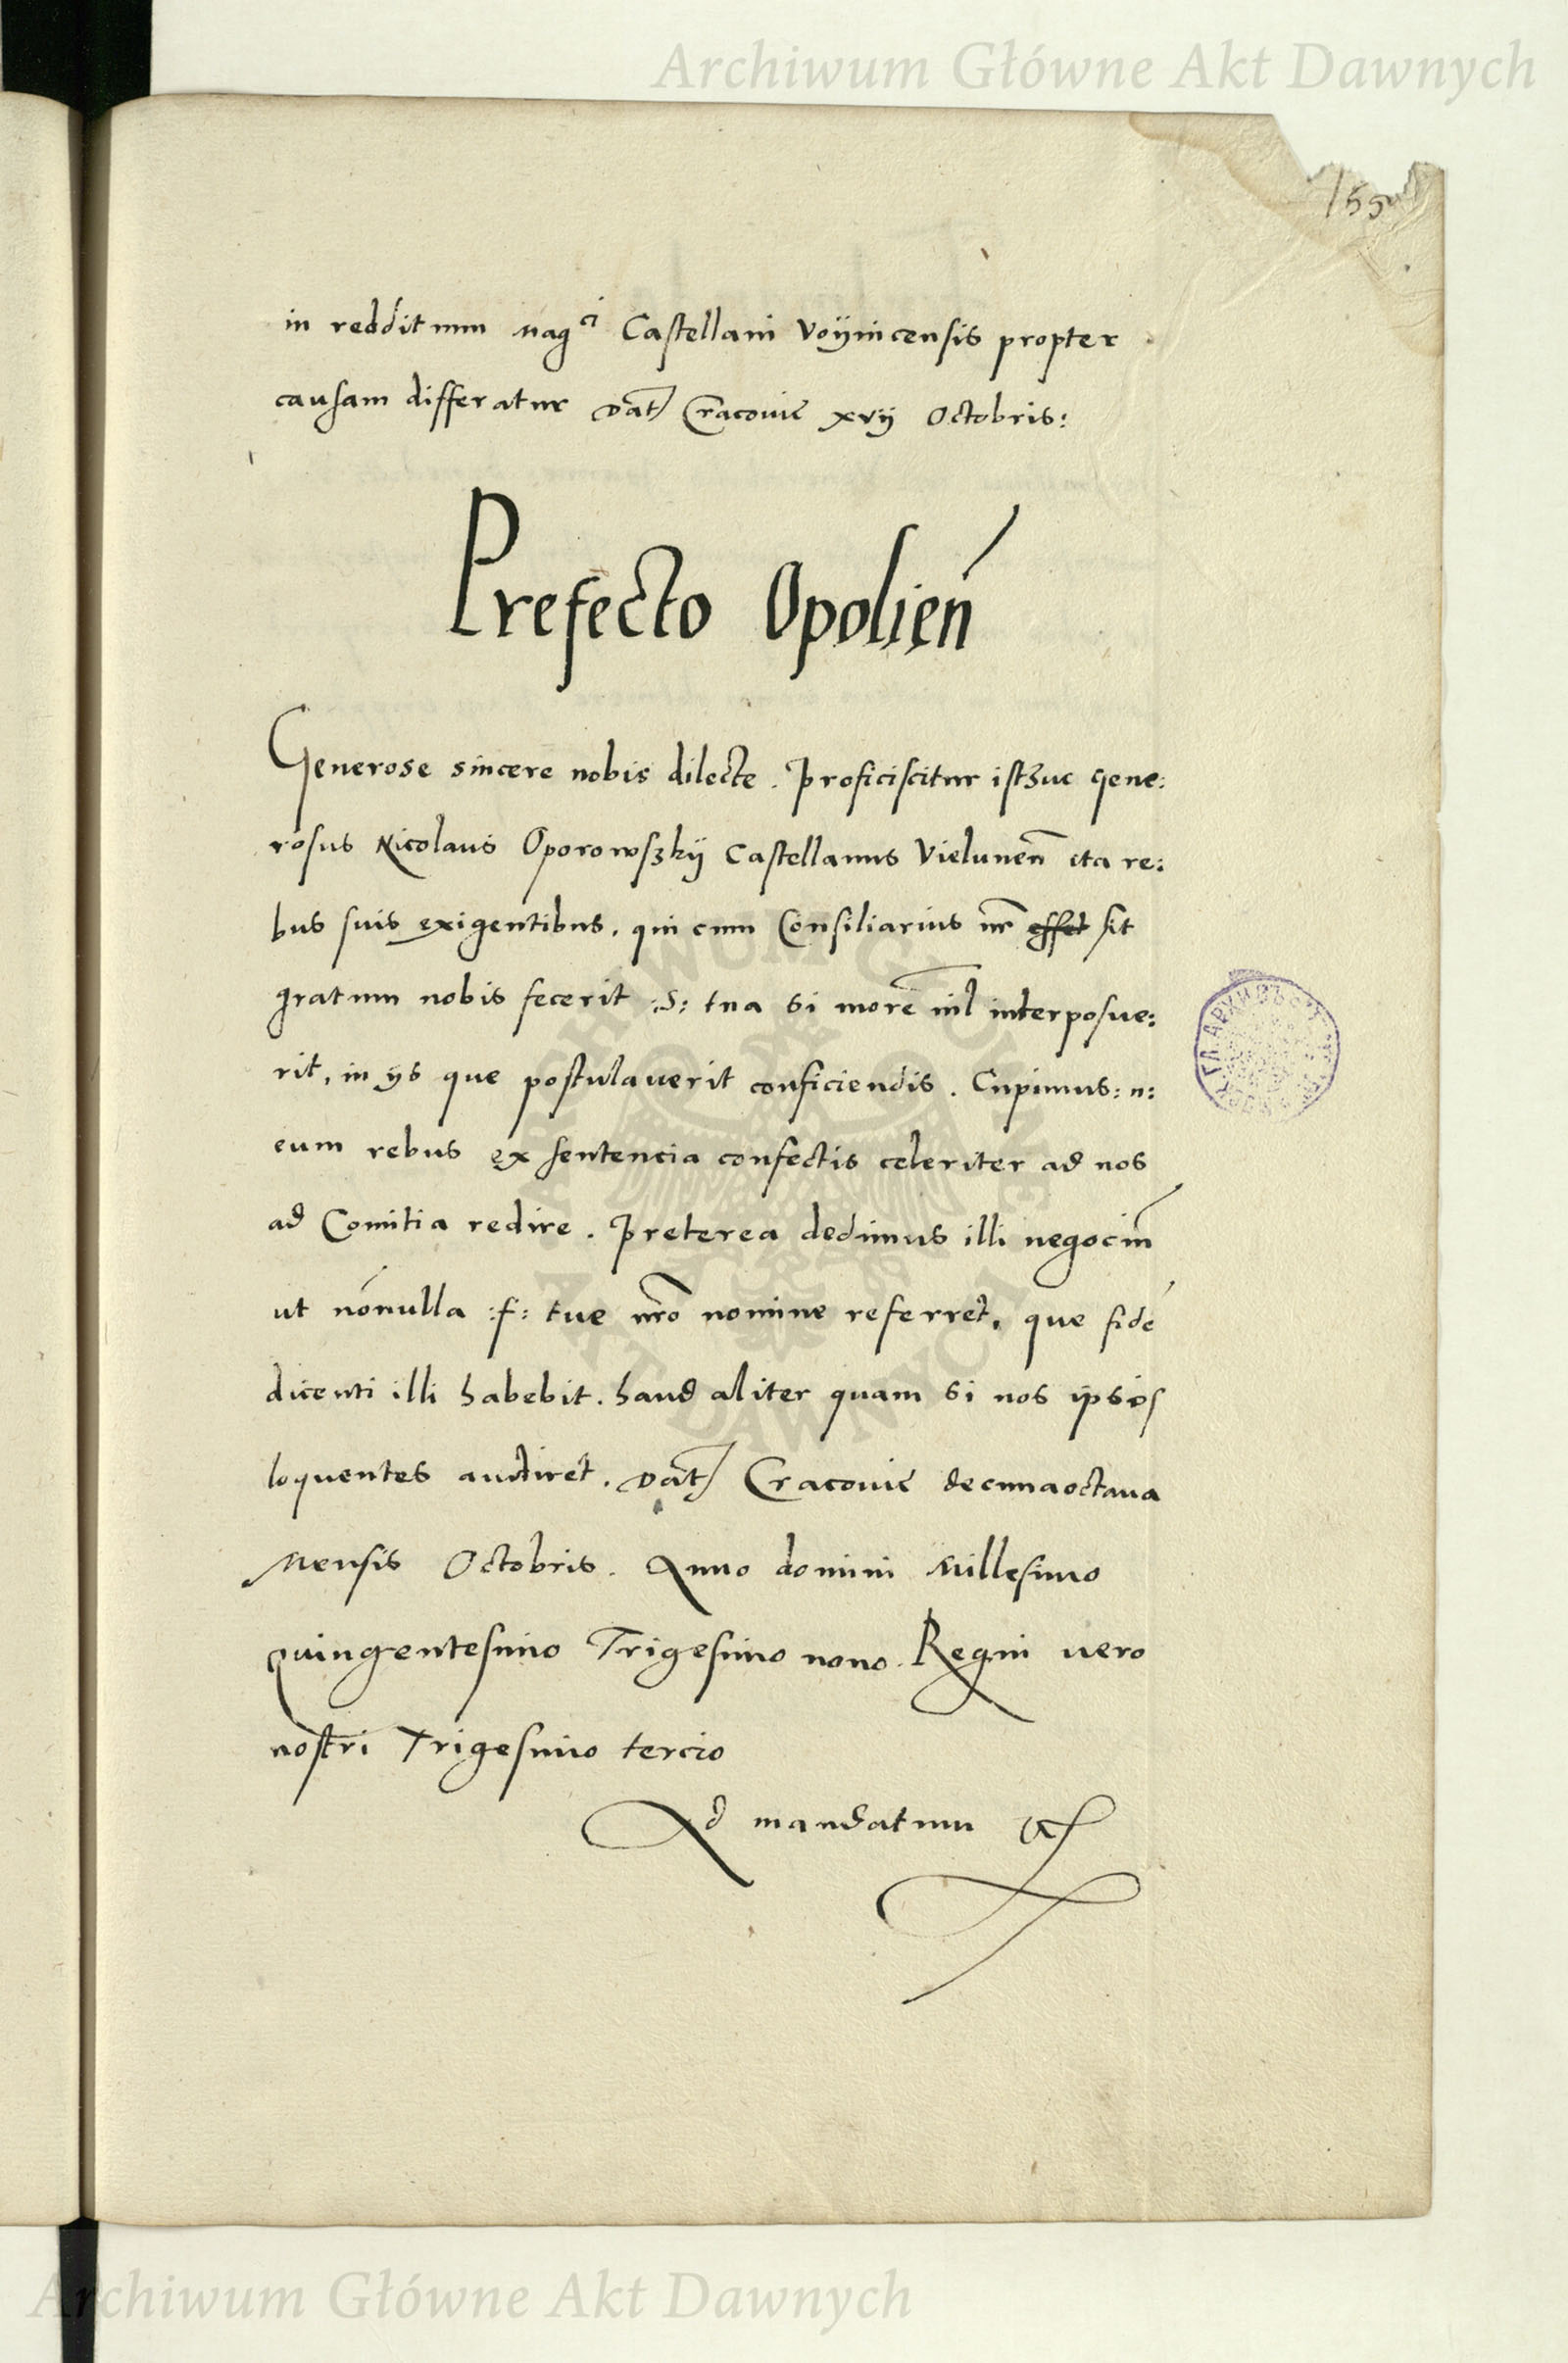 Archiwum Główne Akt Dawnych
155
in redditum Mag^ci Castellani Voÿnicensis propter
causam differatur Dat Cracovie xvij Octobris:
Prefecto Opolien̄
Generose sincere nobis dilecte. Proficiscitur istzuc gene:
rosus Nicolaus Oporowszkÿ Castellanus Vielunen̄ ita re:
bus suis exigentibus. qui cum Consiliarius nr̄ esset sit
gratum nobis fecerit :S: tua si morē nil interposue:
rit, in ijs que postulaverit conficiendis. Cupimus: n:
eum rebus ex sentencia confectis celeriter ad nos
ad Comitia redire. Preterea dedimus illi negociū
ut nōnulla :f: tue nr̄o nomine referret, que fidē
dicenti illi habebit. haud aliter quam si nos ipsos
loquentes audiret. Dat Cracovie decimaoctava
Mensis Octobris. Anno domini Millesimo
quingentesimo Trigesimo nono. Regni vero
nostri Trigesimo tercio
Ad mandatum
ARCHIWUM GŁÓWNE AKT DAWNYCH
Archiwum Główne Akt Dawnych